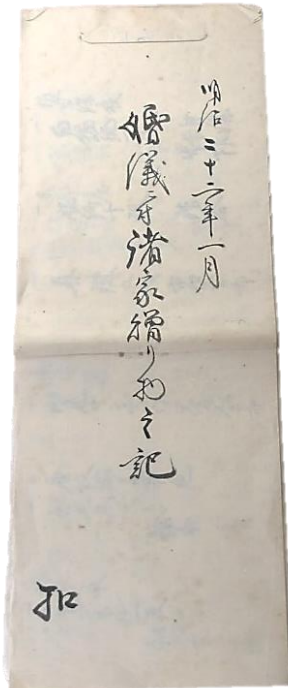 明治二十二年一月
婚儀ニ付諸家贈り物之記
扣